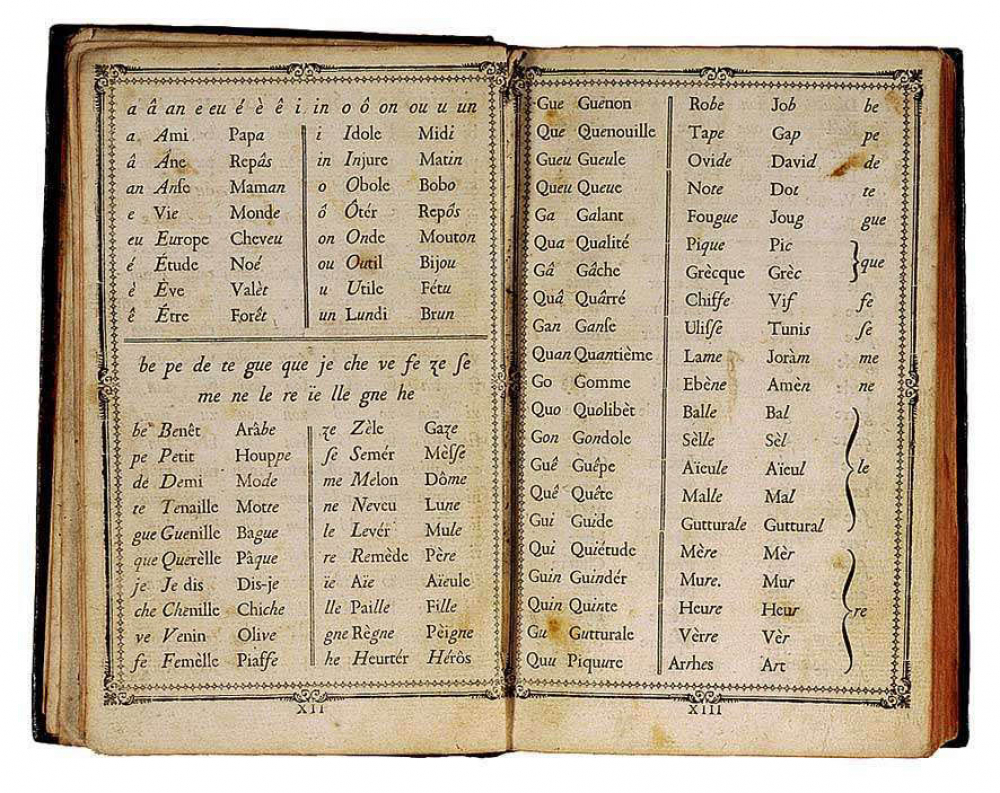 a â an e eu é è ê i in o ô on ou u un
a Ami Papa i Idole Midi
â Âne Repâs in Injure Matin
an Anſe Maman o Obole Bobo
e Vie Monde ô Ôtér Repôs
eu Europe Cheveu on Onde Mouton
é Étude Noé ou Outil Bijou
è Ève Valèt u Utile Fétu
ê Être Forêt un Lundi Brun
be pe de te gue que je che ve fe ze ſe
me ne le re ïe lle gne he
be Benêt Arâbe ze Zèle Gaze
pe Petit Houppe ſe Semér Mèſſe
de Demi Mode me Melon Dôme
te Tenaille Motte ne Neveu Lune
gue Guenille Bague le Levér Mule
que Querèlle Pâque re Remède Père
je Je dis Dis-je ïe Aïe Aïeule
che Chenille Chiche lle Paille Fille
ve Venin Olive gne Règne Pèigne
fe Femèlle Piaffe he Heurtér Hérôs
XII
Gue Guenon Robe Job be
Que Quenouille Tape Gap pe
Gueu Gueule Ovide David de
Queu Queue Note Dot te
Ga Galant Fougue Joug gue
Qua Qualité Pique Pic
que
Gâ Gâche Grècque Grèc
Quâ Quârré Chiffe Vif fe
Gan Ganſe Uliſſe Tunis ſe
Quan Quantième Lame Joràm me
Go Gomme Ebène Amèn ne
Quo Quolibèt Balle Bal
Gon Gondole Sèlle Sèl
Guê Guêpe Aïeule Aïeul le
Quê Quête Malle Mal
Gui Guide Gutturale Guttural
Qui Quiétude Mère Mèr
Guin Guindér Mure. Mur
Quin Quinte Heure Heur re
Gu Gutturale Vèrre Vèr
Quu Piquure Arrhes Art
XIII